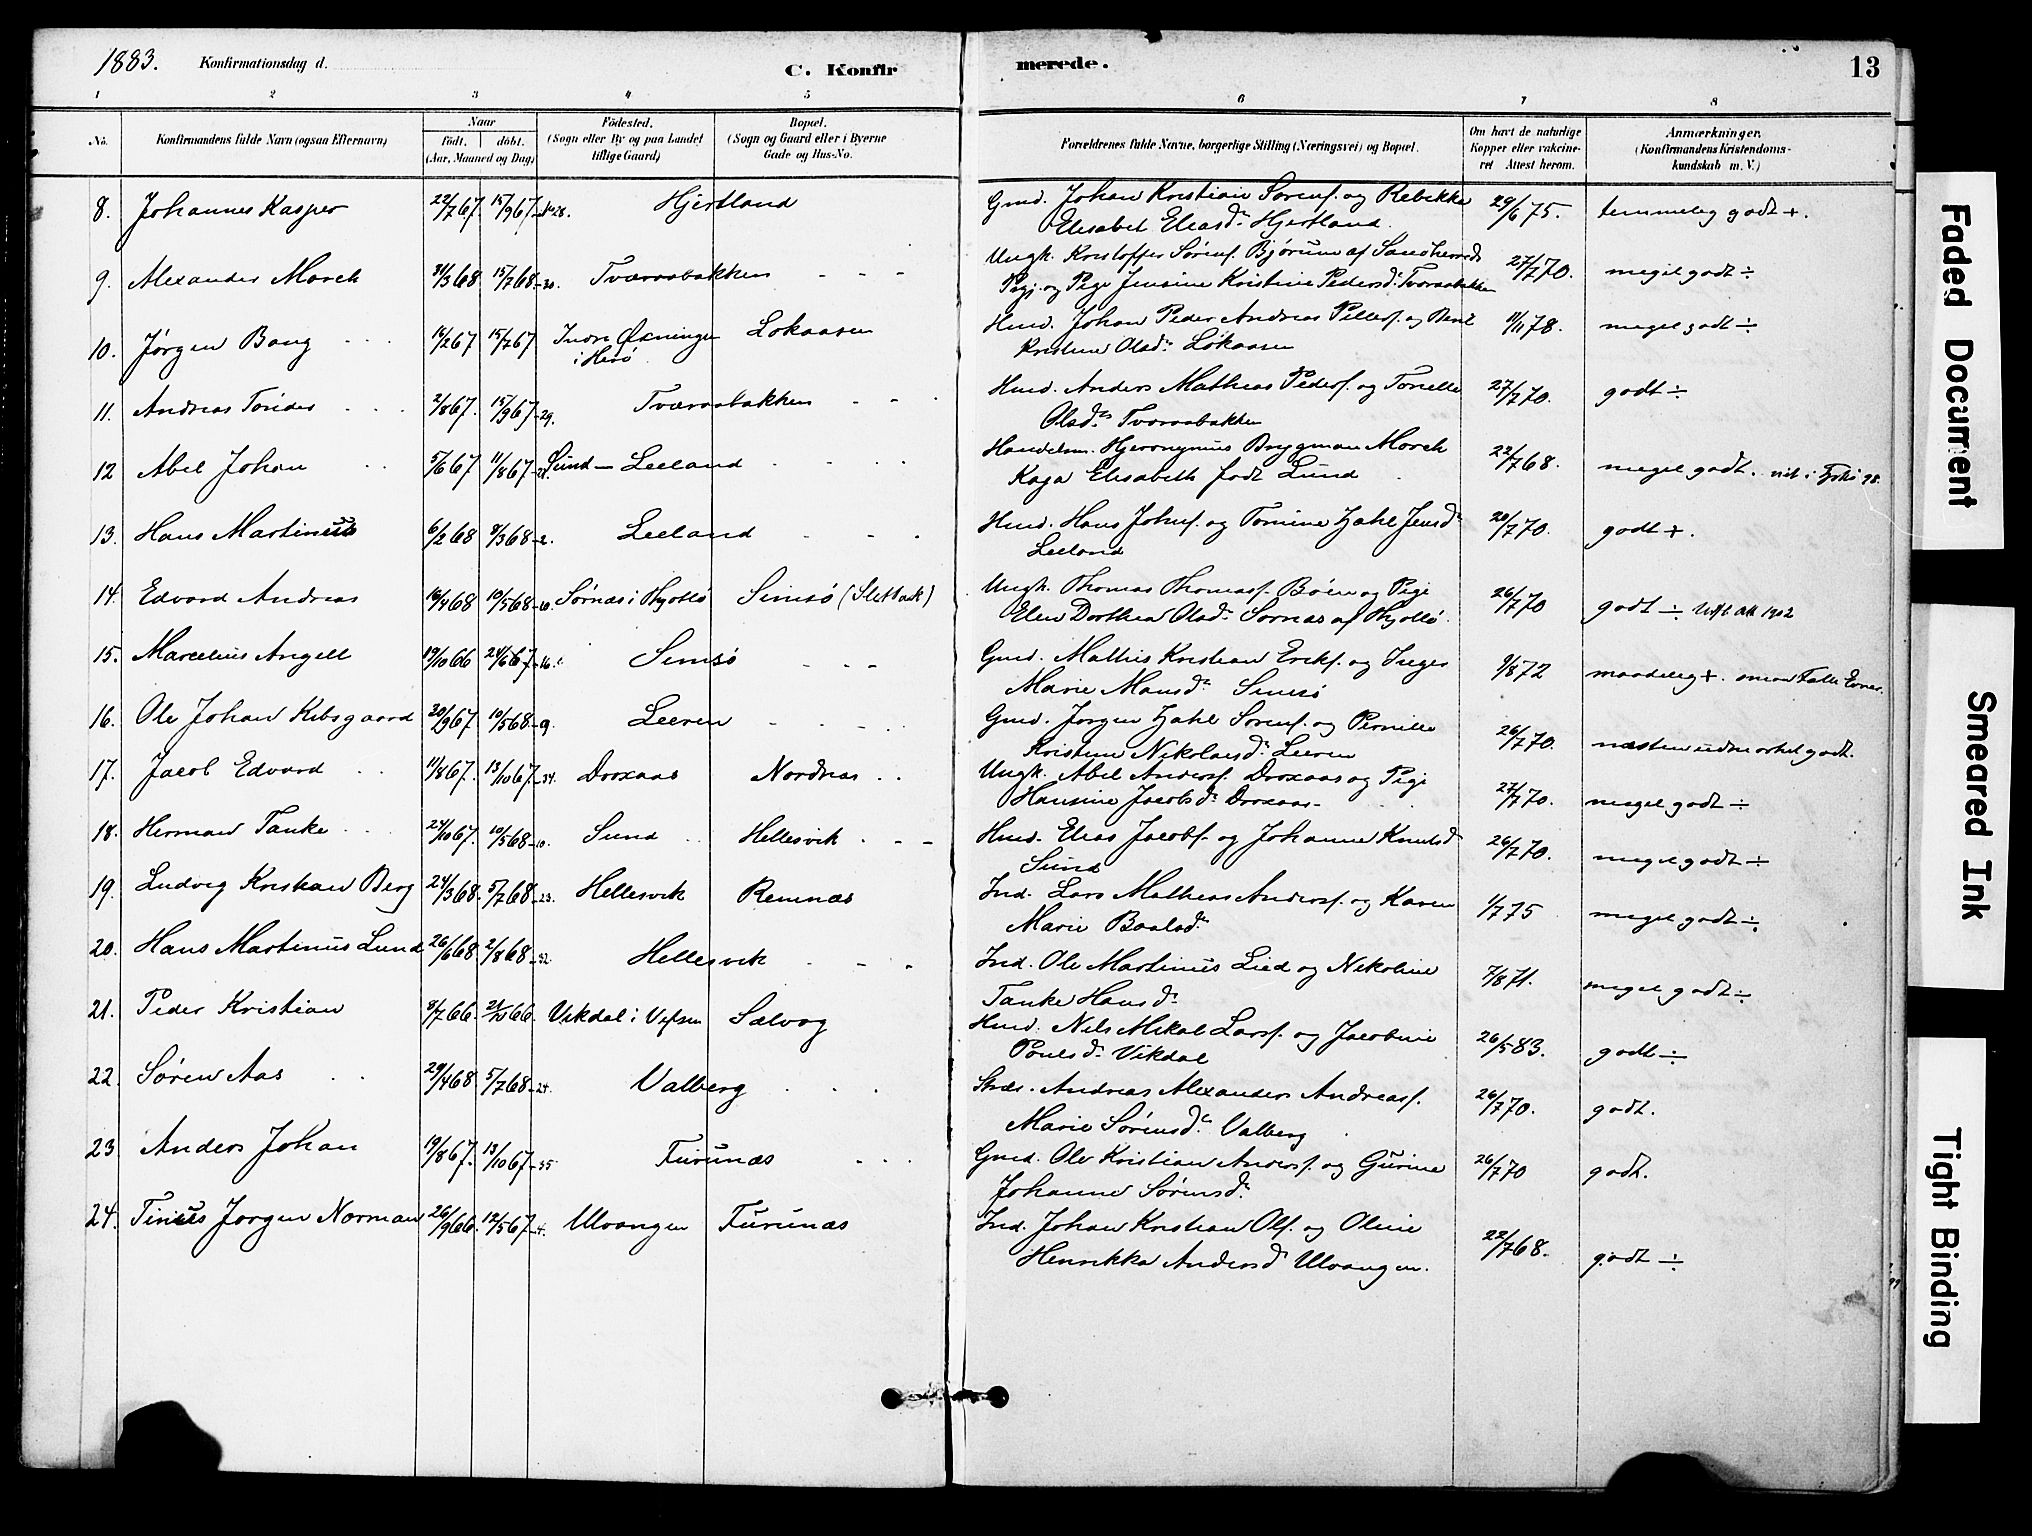 1883. Konfirmationsdag d. C. Konfir merede. 13
1 2 3 4 5 6 7 8
No. Konfirmandens fulde Navn (ogsaa Efternavn) Naar født. døbt. (Aar, Maaned og Dag) Fødested. (Sogn eller By og paa Landet tillige Gaard) Bopæl. (Sogn og Gaard eller i Byerne Gade og Hus-No. Forældrenes fulde Navne, borgerlige Stilling (Næringsvei) og Bopæl. Om havt de naturlige Kopper eller vakcineret Attest herom. Anmærkninger. (Konfirmandens Kristendomskundskab m. V.)
8. Johannes Kasper 22/7 67. 15/9 67 No 28. Hjertland Gmd. Johan Kristian Sørens. og Rebekka 29/6 75. temmelig godt +.
Elisabet Eliasd. Hjertland.
9. Alexander Morch 31/3 68 15/7 68-30. Tværaabakken - - - Ungk. Kristoffer Sørens. Bjørum af Sandherred 27/7 70. meget godt ÷
og Pige Jensine Kristine Pedersd. Tværaabakken
10. Jørgen Bang 16/2 67 15/7 67 Indre Øxningen Lokaasen Hmd. Johan Peder Andreas Pells. og Berit 9/11 78. meget godt ÷
i Herø Kristine Olsd. Lokaasen
11. Andreas Tønder 2/8 67. 15/9 67-29. Tværaabakken - - - Hmd. Anders Mathias Peders. og Tonelle 27/7 70. godt ÷
Olsd. Tværaabakken
12 Abel Johan 5/6 67 11/8 67-21. Sund - Leeland - - - Handelsm. Hjeronymus Brygman Morch 22/7 68. meget godt.
Kaja Elisabeth født Lund
13. Hans Martinus 6/2 68 8/3 68-2. Leeland - - - Hmd. Hans Johns. og Tomine Zahl Jensd. 20/7 70. godt +.
Leeland
14. Edvard Andreas 16/4 68 10/5 68-10. Sørnæs i Hjortø Simsø (Sletbak) Ungk. Thomas Thomass. Bøen og Pige 26/7 70 godt ÷ Utfl. att 1902
Elen Dorthea Olsd. Sørnæs af Hjortø.
15. Marcelius Angell 19/10 66 24/6 67-16. Simsø - - - Gmd. Mathis Kristian Eriks. og Inger 9/8 72 maadelig +.
Marie Mansd. Simsø
16. Ole Johan Kibsgaard 20/9 67. 10/5 68-9. Leeren - - - Gmd. Jørgen Zahl Sørens. og Pernille 26/7 70. næsten udmærket godt.
Kristine Nikolaisd. Leeren
17. Jacob Edvard 11/8 67. 13/10 67-34. Droxaas Nordnæs - - Ungk. Abel Anders. Droxaas og Pige 27/7 70. meget godt ÷
Hansine Jacobsd. Droxaas
18. Herman Tanke 24/10 67. 10/5 68-10. Sund Hellesvik - - - Hmd. Elias Jacobs. og Johanne Knutsd. 26/7 70. meget godt ÷
Sund
19. Ludvig Kristian Berg 24/3 68. 5/7 68-23. Hellesvik Remnæs Ind. Lars Mathias Anders. og Karen 1/7 75 meget godt ÷
Marie Baalsd.
20. Hans Martinus Lund 26/6 68 2/8 68-32. Hellesvik - - - Ind. Ole Martinus Lied og Nikoline 7/8 71. meget godt ÷
Tanke Hansd.
21. Peder Kristian 8/7 66. 21/10 66. Vikdal i Vefsen Sælvog Hmd. Nils Mikal Lars. og Jacobine 26/5 83. godt ÷
Poulsd. Vikdal
22. Søren Aas 29/4 68 5/7 68-24. Valberg - - - Andreas Alexander Andreass. 26/7 70. godt.
Marie Sørensd. Valberg
23 Anders Johan 19/8 67. 13/10 67-35 Furunæs - - - Gmd. Ole Kristian Anders. og Gurine 26/7 70 godt.
Johanne Sørensd.
24. Tinius Jørgen Norman 26/9 66. 12/5 67-4. Ulvangen Furunæs Ind. Johan Kristian Ols. og Oline 22/7 68. godt ÷
Henrikka Andersd. Ulvangen.
Faded Document
Smeared Ink
Tight Binding